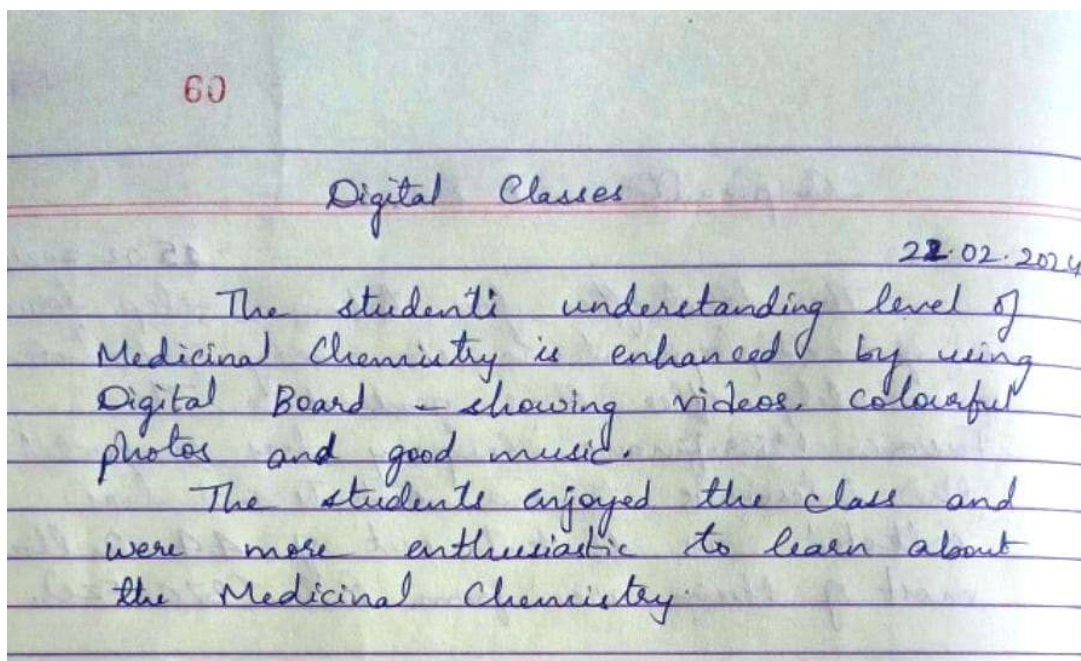 60
Digital Classes
22.02.2024
The students understanding level of
Medicinal Chemistry is enhanced by using
Digital Board - showing videos, colourful
photos and good music.
The students enjoyed the class and
were more enthusiastic to learn about
the Medicinal Chemistry.